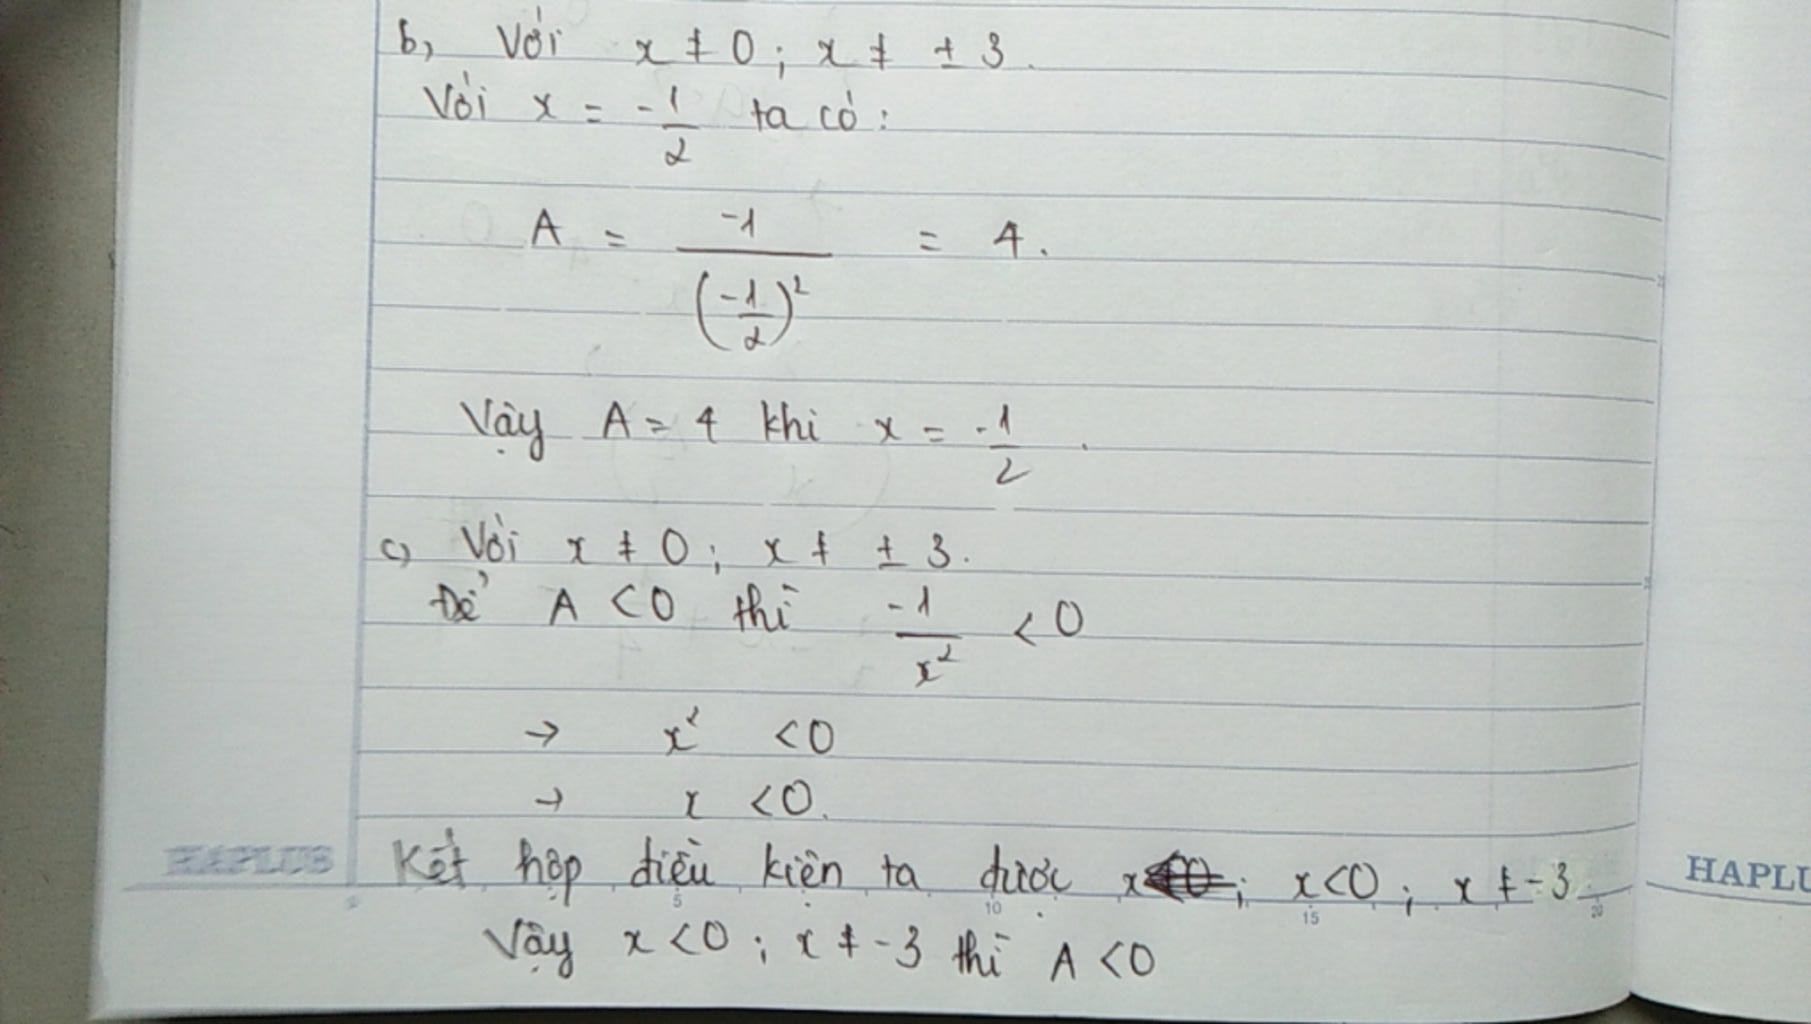 b, Với x ≠ 0 ; x ≠ ± 3.
Với x = -1/2 ta có:
A = -1/(-1/2)² = 4.
Vậy A = 4 khi x = -1/2.
c, Với x ≠ 0 ; x ≠ ± 3.
Để A < 0 thì -1/x² < 0
→ x² < 0
→ x < 0.
Kết hợp điều kiện ta được ; x < 0 ; x ≠ -3
HAPLUS
5 10 15 20
Vậy x < 0 ; x ≠ -3 thì A < 0